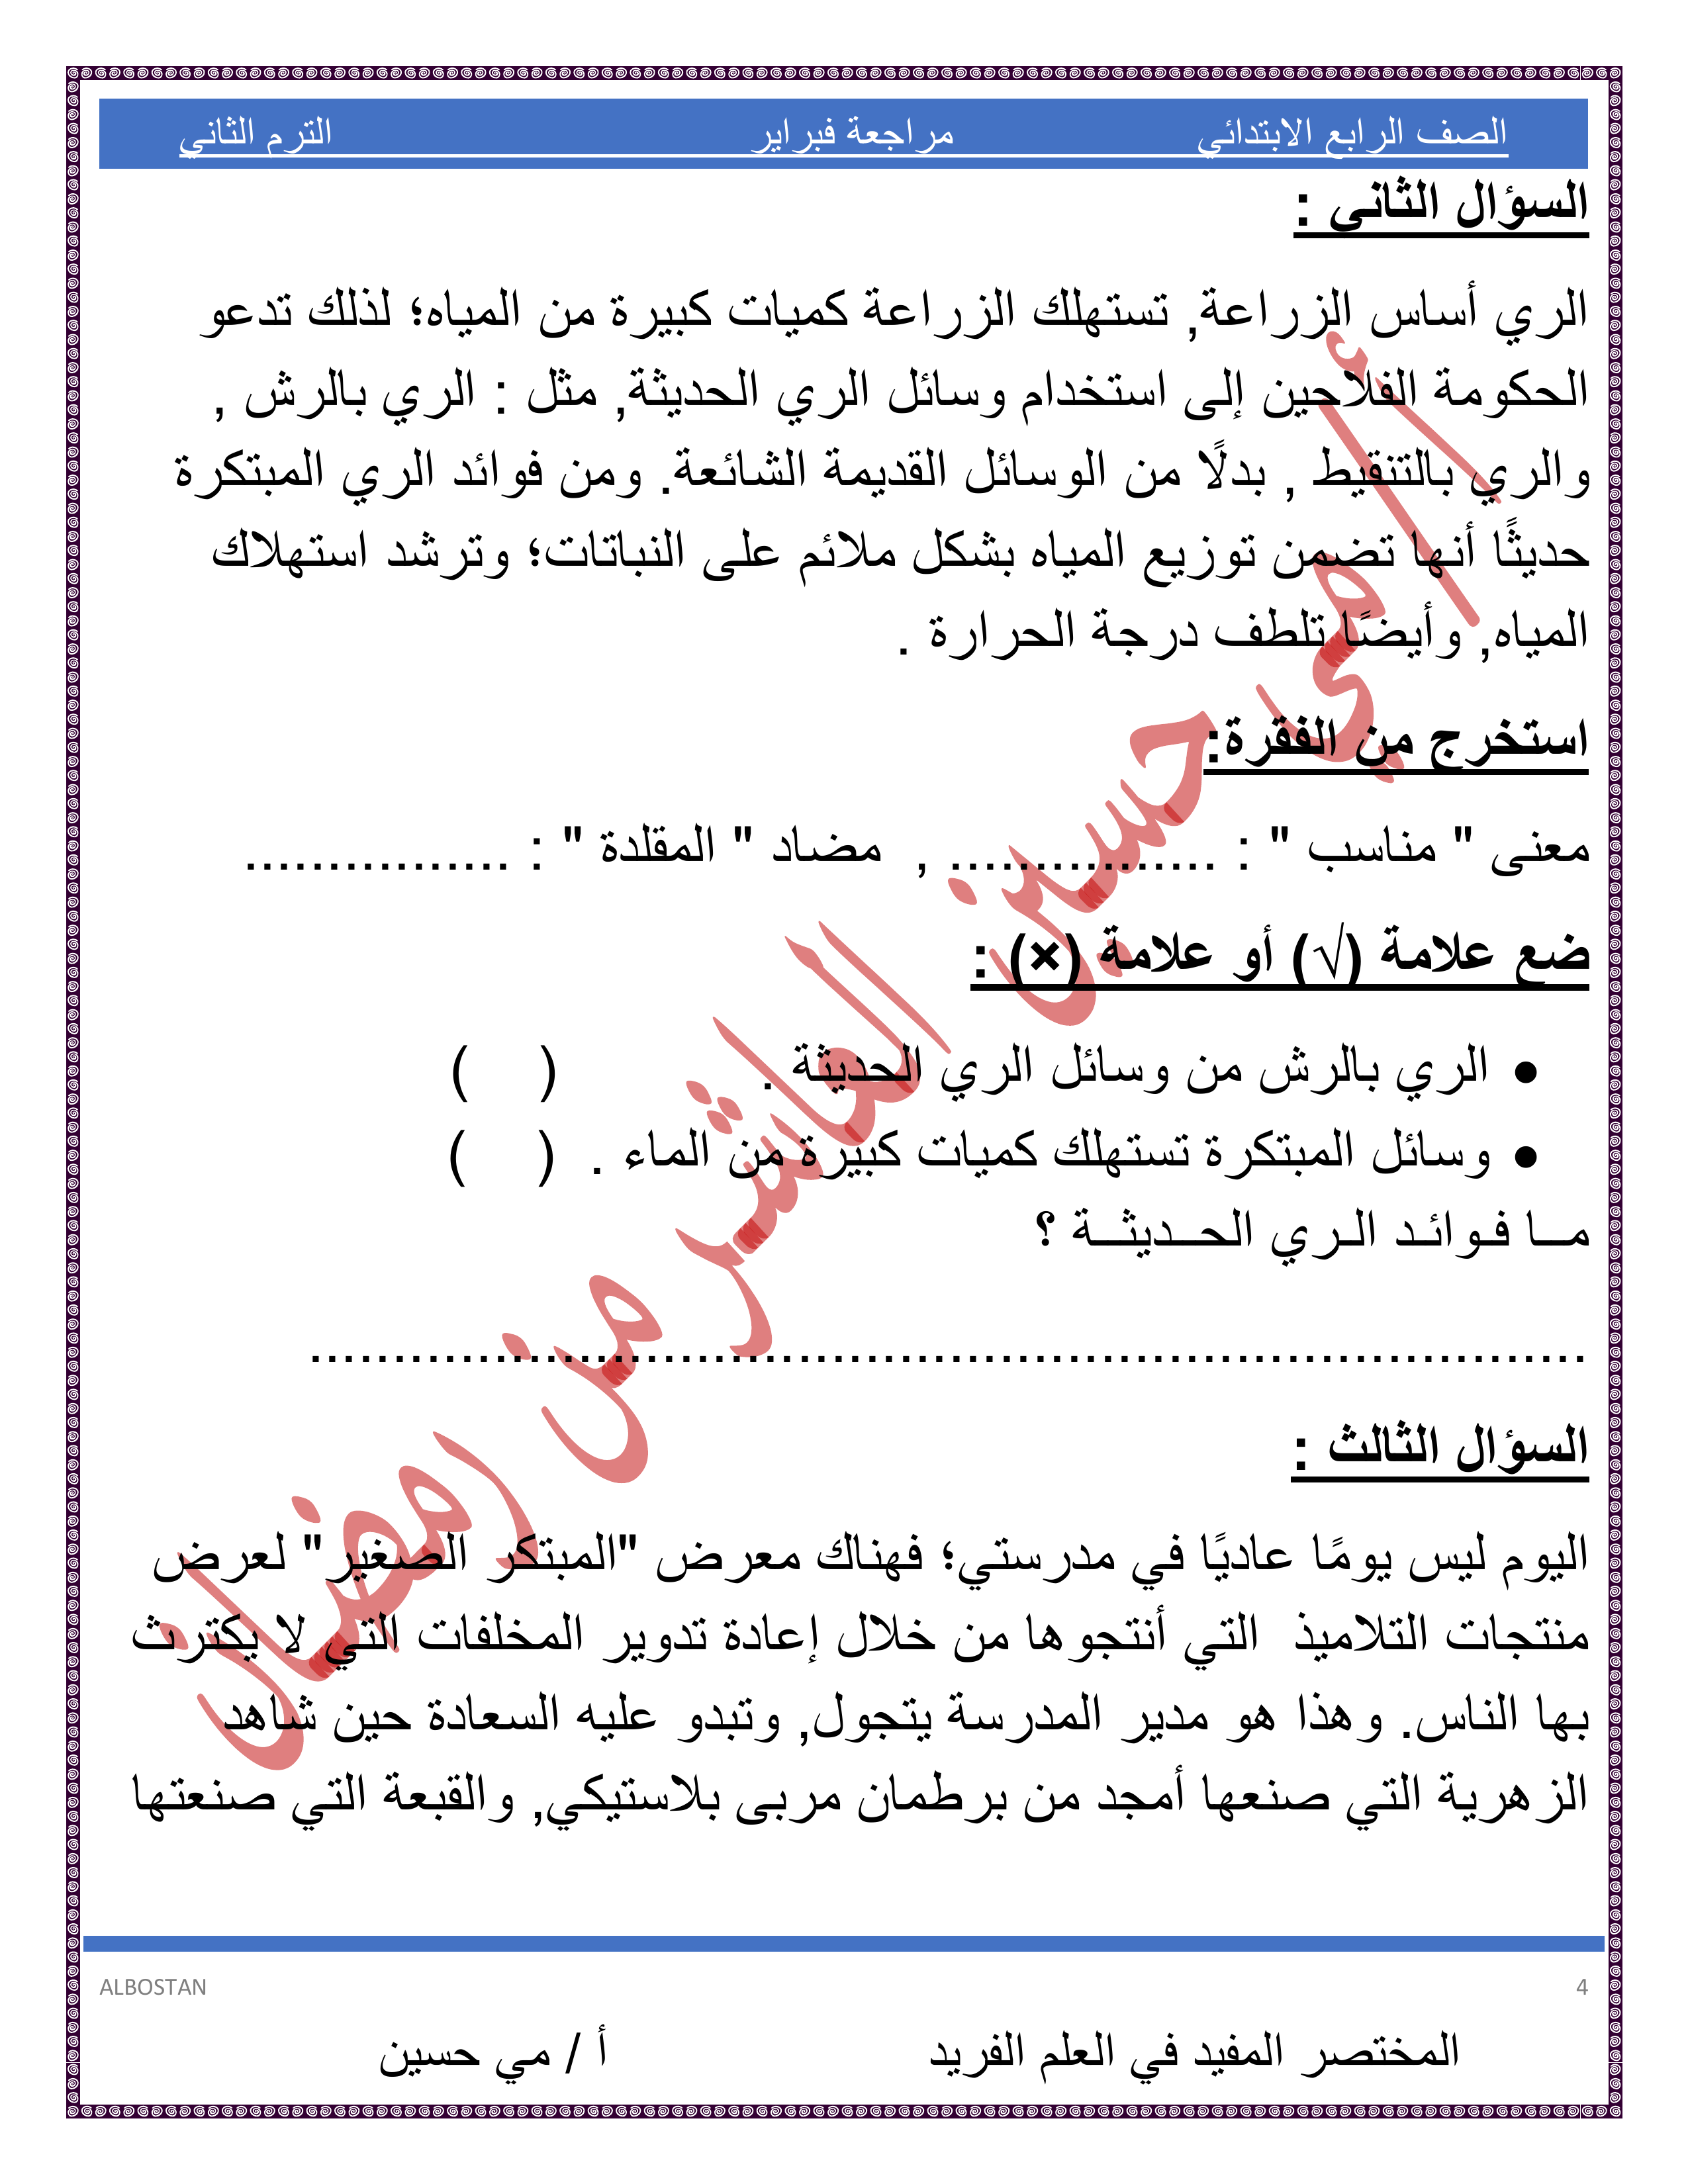 الصف الرابع الابتدائي مراجعة فبراير الترم الثاني
السؤال الثاني :
الري أساس الزراعة, تستهلك الزراعة كميات كبيرة من المياه؛ لذلك تدعو
الحكومة الفلاحين إلى استخدام وسائل الري الحديثة, مثل : الري بالرش ,
والري بالتنقيط , بدلًا من الوسائل القديمة الشائعة. ومن فوائد الري المبتكرة
حديثًا أنها تضمن توزيع المياه بشكل ملائم على النباتات؛ وترشد استهلاك
المياه, وأيضًا تلطف درجة الحرارة .
استخرج من الفقرة:
معنى " مناسب " : ................ , مضاد " المقلدة " : ................
ضع علامة (√) أو علامة (×) :
• الري بالرش من وسائل الري الحديثة . ( )
• وسائل المبتكرة تستهلك كميات كبيرة من الماء . ( )
مــا فـوائـد الـري الحــديثــة ؟
............................................................................
السؤال الثالث :
اليوم ليس يومًا عاديًا في مدرستي؛ فهناك معرض "المبتكر الصغير" لعرض
منتجات التلاميذ التي أنتجوها من خلال إعادة تدوير المخلفات التي لا يكترث
بها الناس. وهذا هو مدير المدرسة يتجول, وتبدو عليه السعادة حين شاهد
الزهرية التي صنعها أمجد من برطمان مربى بلاستيكي, والقبعة التي صنعتها
أ/ مي حسين العاشر من رمضان
ALBOSTAN 4
المختصر المفيد في العلم الفريد أ / مي حسين